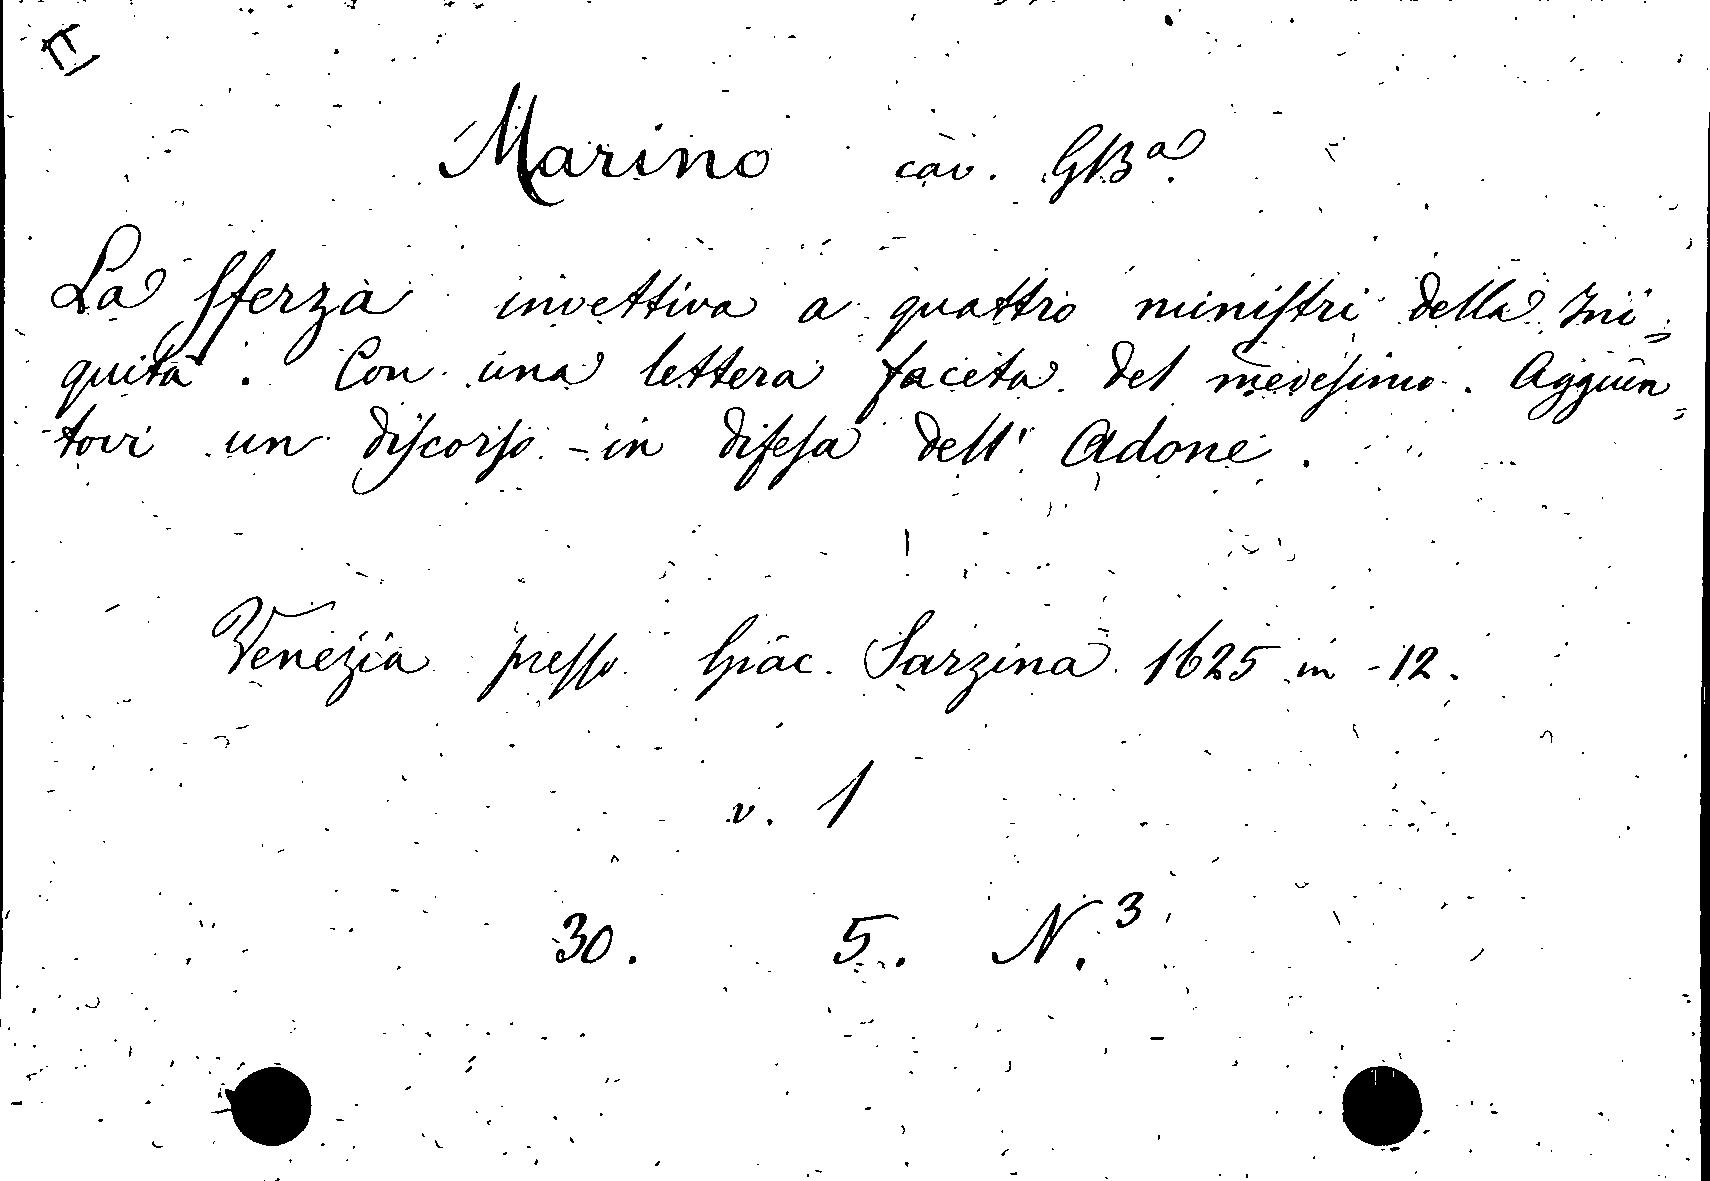 II
Marino cav. GBa.
La sferza invettiva a quattro ministri della Ini=
quità. Con una lettera faceta del medesimo. Aggiun=
tovi un discorso in difesa dell' Adone.
Venezia presso Giac. Sarzina 1625 in-12.
v. 1
30. 5. N.3